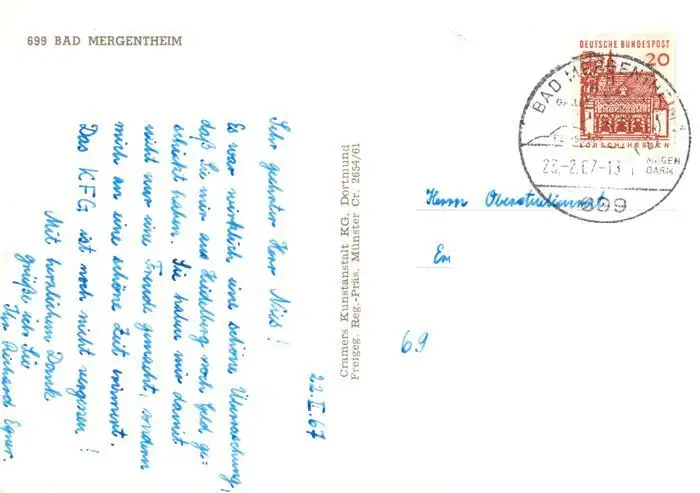 699 BAD MERGENTHEIM
Sehr geehrter Herr
Es war wirklich eine schöne Überraschung,
daß Sie mir aus Heidelberg noch Geld ge-
schickt haben. Sie haben mir damit
nicht nur eine Freude gemacht, sondern
mich an eine schöne Zeit erinnert.
Das KFG ist noch nicht vergessen!
Mit herzlichem Dank
grüße ich Sie
Ihr Richard
22.II.67
Cramers Kunstanstalt KG, Dortmund
Freigeg. Reg.-Präs. Münster Cr. 2654/61
DEUTSCHE BUNDESPOST
20
LORSCH/HESSEN
BAD MERGENTHEIM
23.-2.67-13
MAGEN
DARM
699
Herrn Oberstudienrat
69